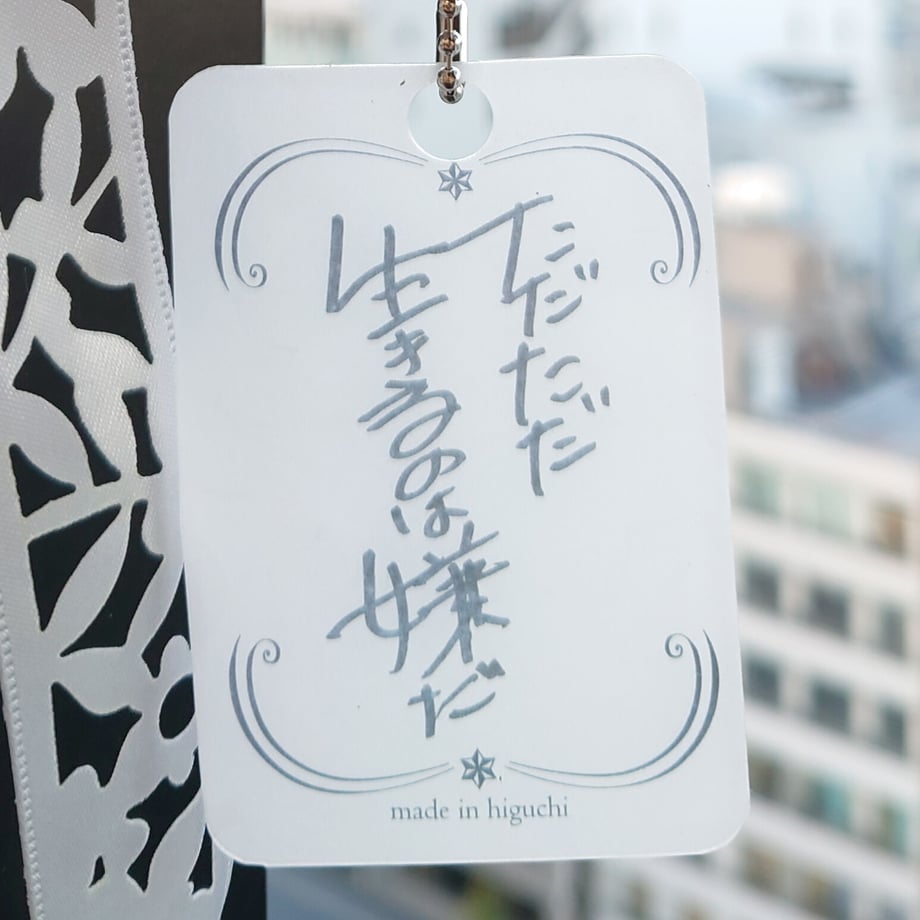 ただただ
生きるのは嫌だ
made in higuchi